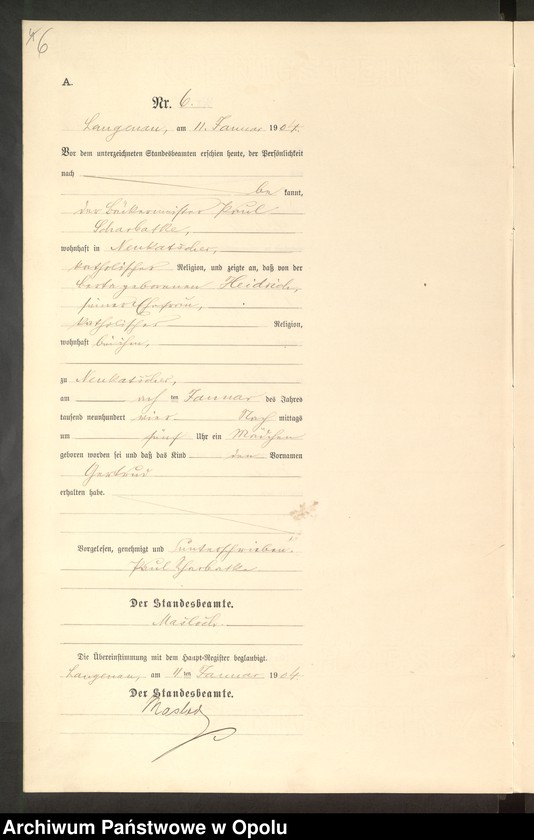 6
A.
Nr. 6.
Langenau, am 11. Januar 1904.
Vor dem unterzeichneten Standesbeamten erschien heute, der Persönlichkeit
nach
be kannt,
der Bäckermeister Paul
Scharbatke,
wohnhaft in Neukatscher,
katholischer Religion, und zeigte an, daß von der
geborenen Heidrich,
seiner Ehefrau,
katholischer Religion,
wohnhaft bei ihm,
zu Neukatscher,
am ten Januar des Jahres
tausend neunhundert vier Nach mittags
um fünf Uhr ein Mädchen
geboren worden sei und daß das Kind den Vornamen
Gertrud
erhalten habe.
Vorgelesen, genehmigt und unterschrieben.
Paul
Der Standesbeamte.
Die Übereinstimmung mit dem Haupt-Register beglaubigt.
Langenau, am 11 ten Januar 1904.
Der Standesbeamte.
Archiwum Państwowe w Opolu